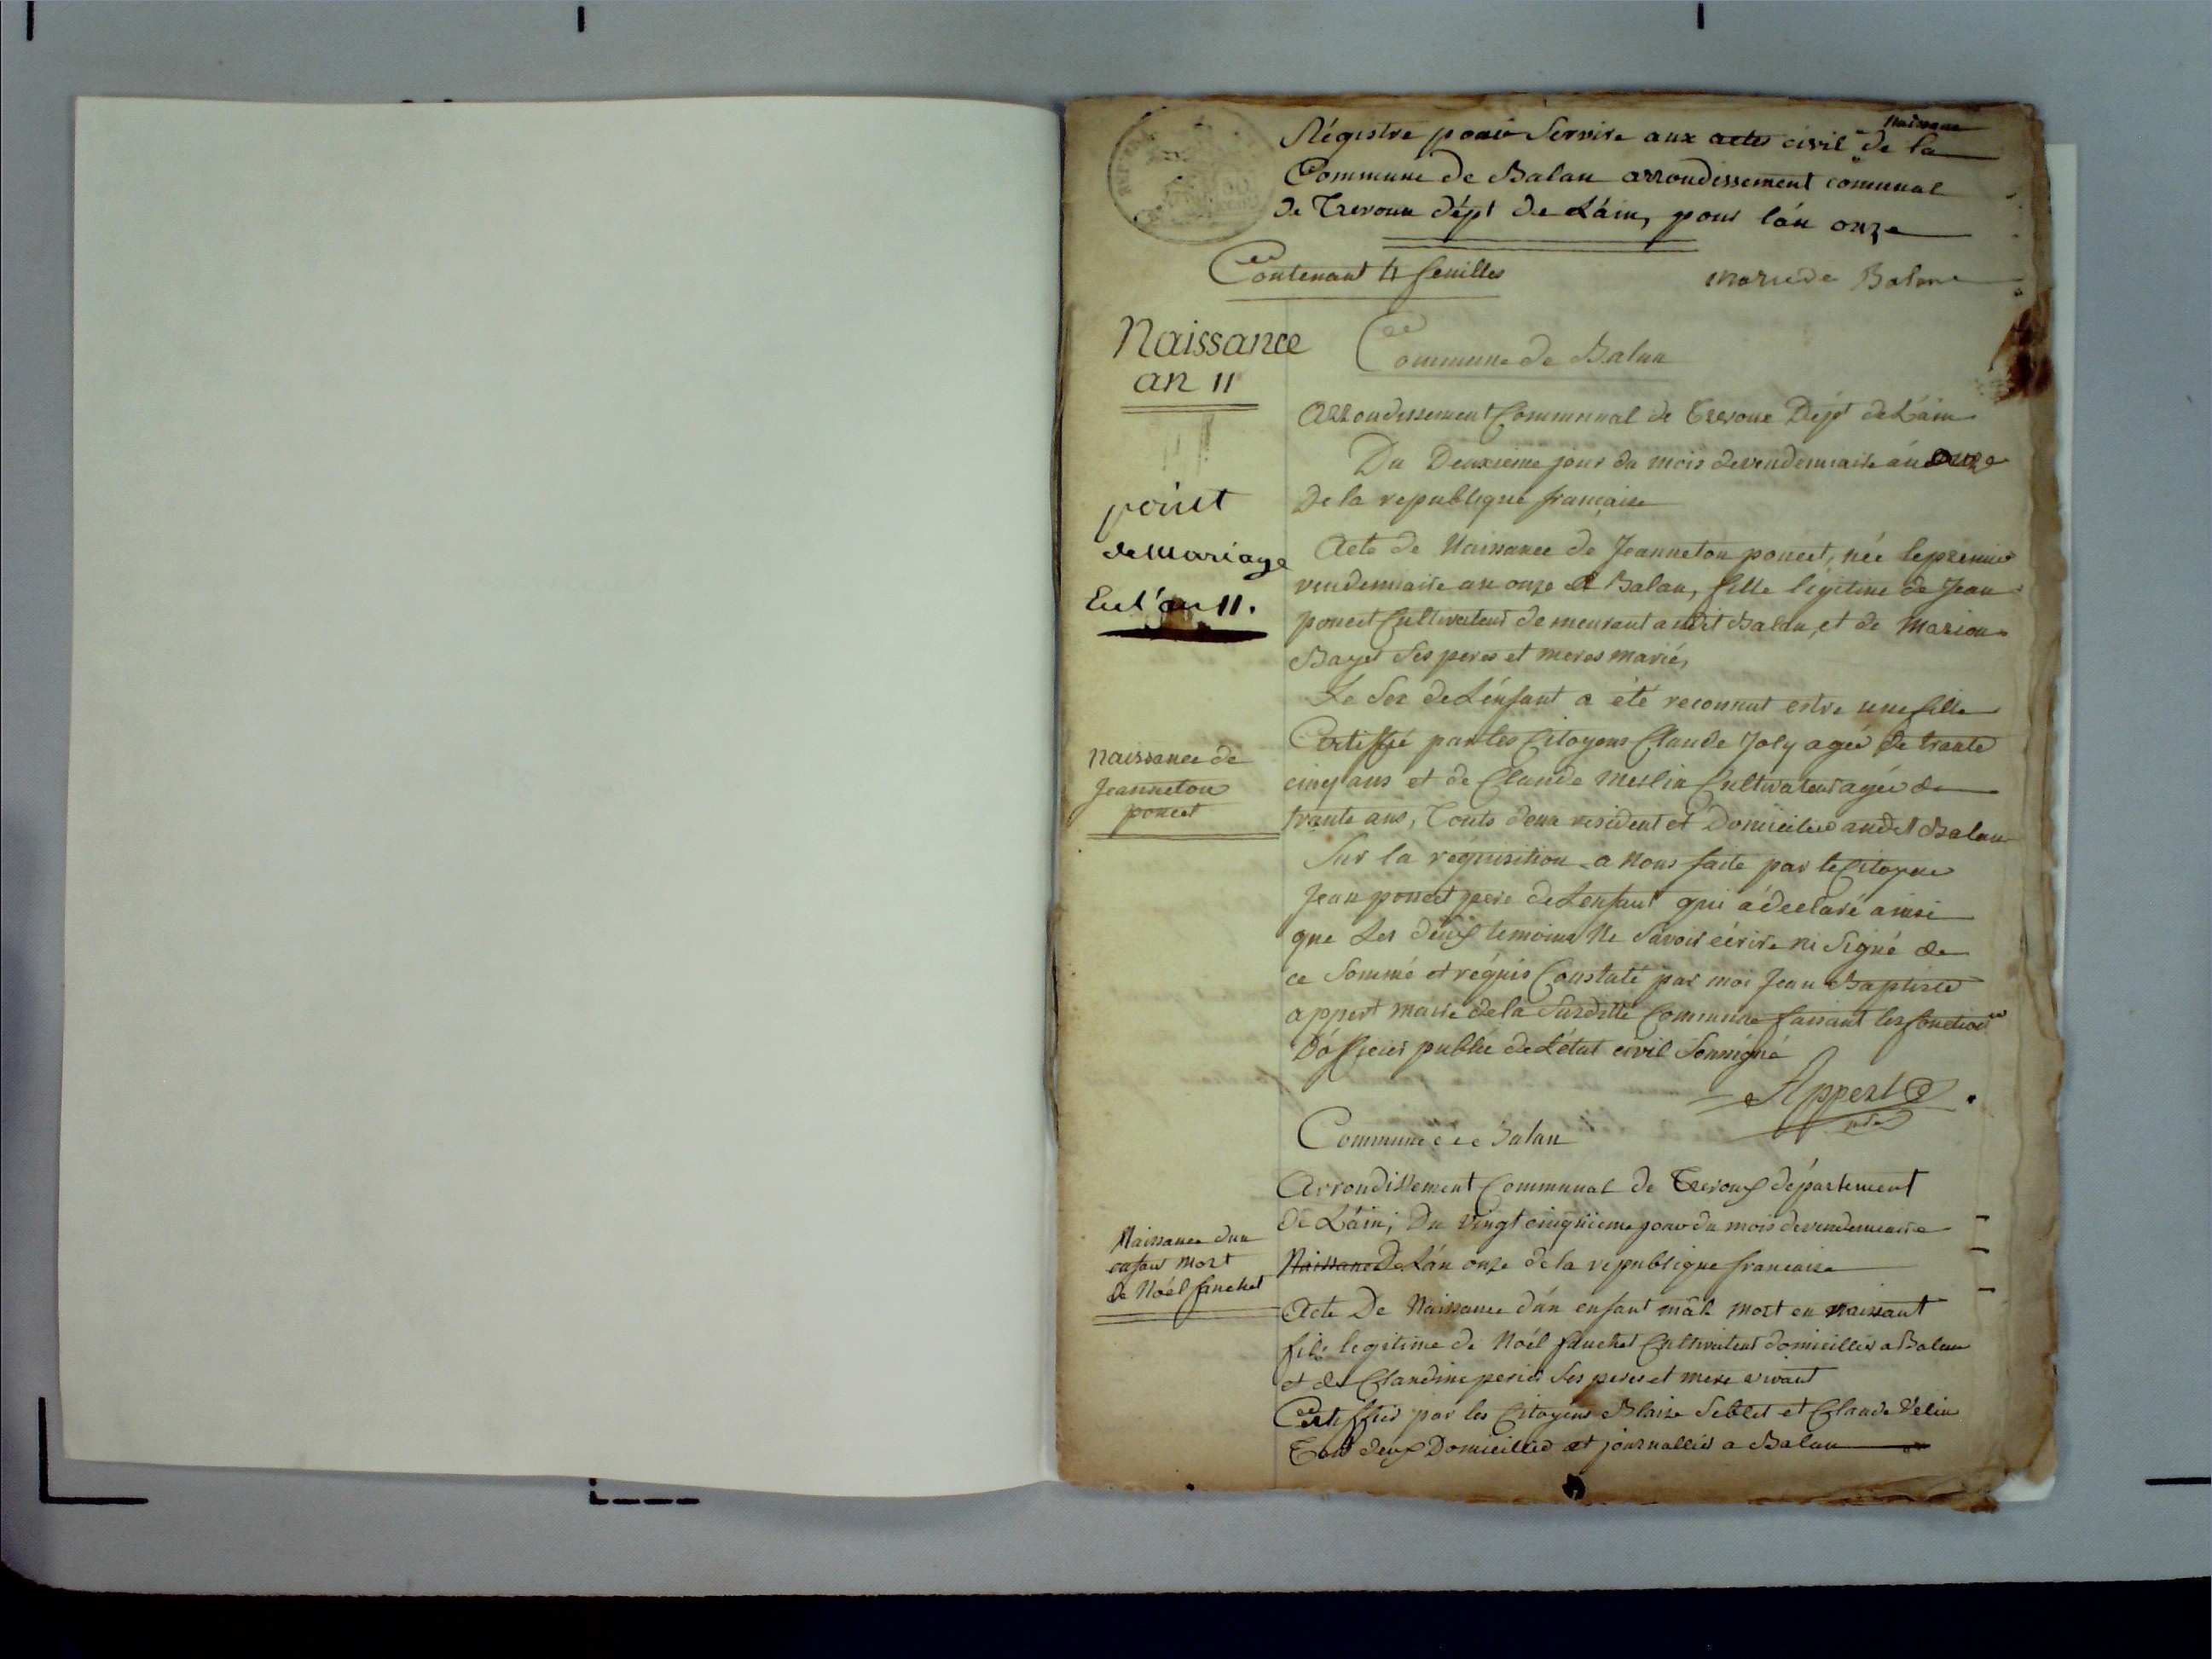 Régistre pour Servire aux actes civil Naissance de la
Commune de Balan arrondissement comunal
de Trevoux dépt de L'áin, pour l'án onze
Contenant 4 feuilles
Naissance
an 11
Commune de Balan
Arrondissement Communal de Trevoux Dépt de L'áin
Du Deuxieme jour du mois de vendemiaire án onze
De la republique française
point
de Mariage
En l'an 11.
Acte de Naissance de Jeanneton poncet, née le premier
vendemiaire an onze a Balan, fille légitime de Jean
poncet Cultivateur demeurant audit Balan, et de Marion
Bayet Ses peres et meres mariés,
Le Sex de L'énfant a été reconnut estre une fille
Naissance de
Jeanneton
poncet
Certiffié par les Citoyens Claude Joly agée de trante
cinq ans et de Claude Merlin Cultivateur agée de
trante ans, Touts deux résident et Domicilied audit Balan
Sur la réquisition a Nous faite par le Citoyen
Jean poncet pere de L'enfant qui á déclaré ainsi
que Les deux temoins Ne Savoir écrire ni Signé de
ce Sommé et réquis Constaté par moi Jean Baptiste
appert maire de la Susditte Commune faisant les fonction
D'ófficier public de L'état civil Soussigné
Appert
Commune de Balan
Arrondissement Communal de Trevoux département
de L'áin; Du vingt cinquieme jour du mois de vendemiaire
Naissance De L'án onze de la republique francaise
Naissance d'un
enfant mort
de Noél fanchet
Acte De Naissance d'ún enfant mâle mort en naissant
fils legitime de Noél fanchet Cultivateur domicillié a Balan
et de Claudine perier Ses peres et mere vivant
Certiffiér par les Citoyens Blaise Seblet et Claude Velin
Tout deux Domicilied et journallier a Balan